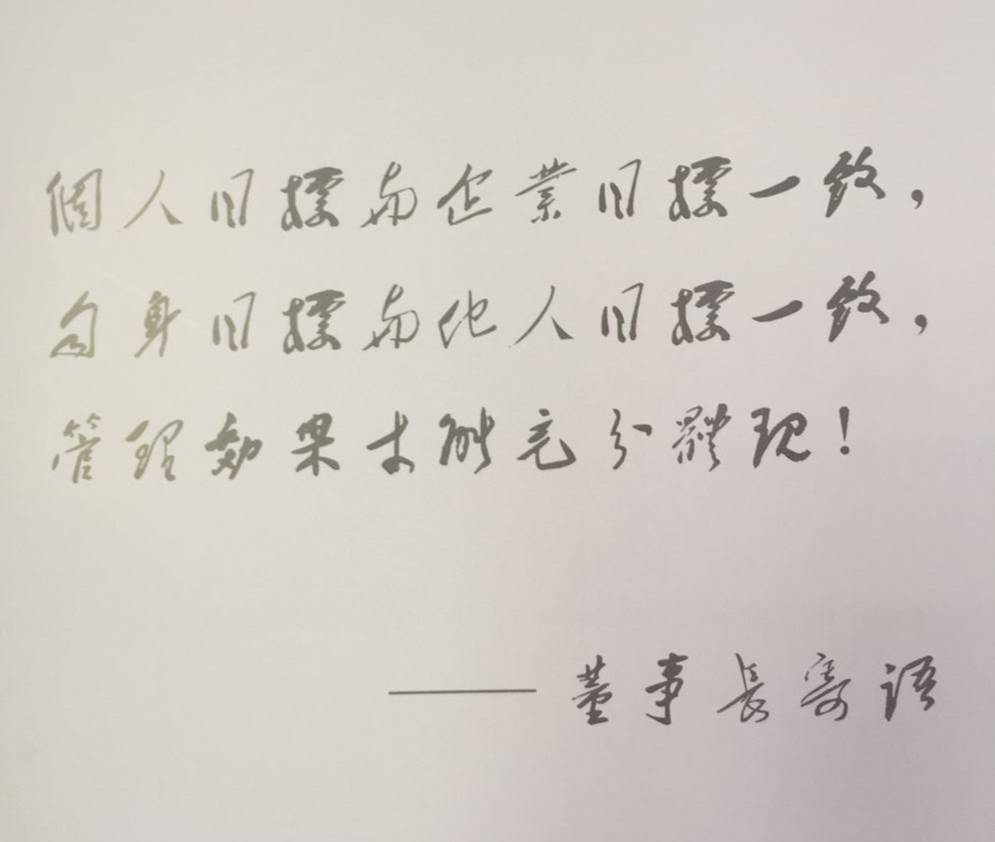 個人目標与企業目標一致，
自身目標与他人目標一致，
管理效果才能充分體現！
——董事長寄語